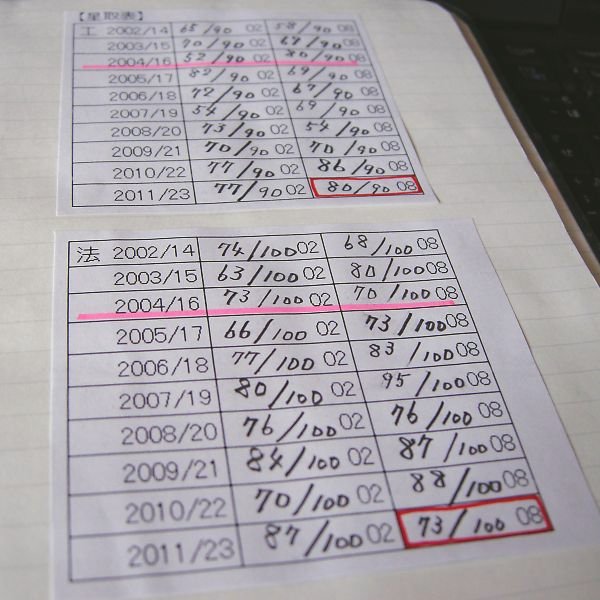 【星取表】
工 2002/14 65/90 02 58/90 08
2003/15 70/90 02 67/90 08
2004/16 52/90 02 80/90 08
2005/17 82/90 02 69/90 08
2006/18 72/90 02 67/90 08
2007/19 54/90 02 69/90 08
2008/20 73/90 02 54/90 08
2009/21 70/90 02 70/90 08
2010/22 77/90 02 86/90 08
2011/23 77/90 02 80/90 08
法 2002/14 74/100 02 68/100 08
2003/15 63/100 02 80/100 08
2004/16 73/100 02 70/100 08
2005/17 66/100 02 73/100 08
2006/18 77/100 02 83/100 08
2007/19 80/100 02 95/100 08
2008/20 76/100 02 76/100 08
2009/21 84/100 02 87/100 08
2010/22 70/100 02 88/100 08
2011/23 87/100 02 73/100 08